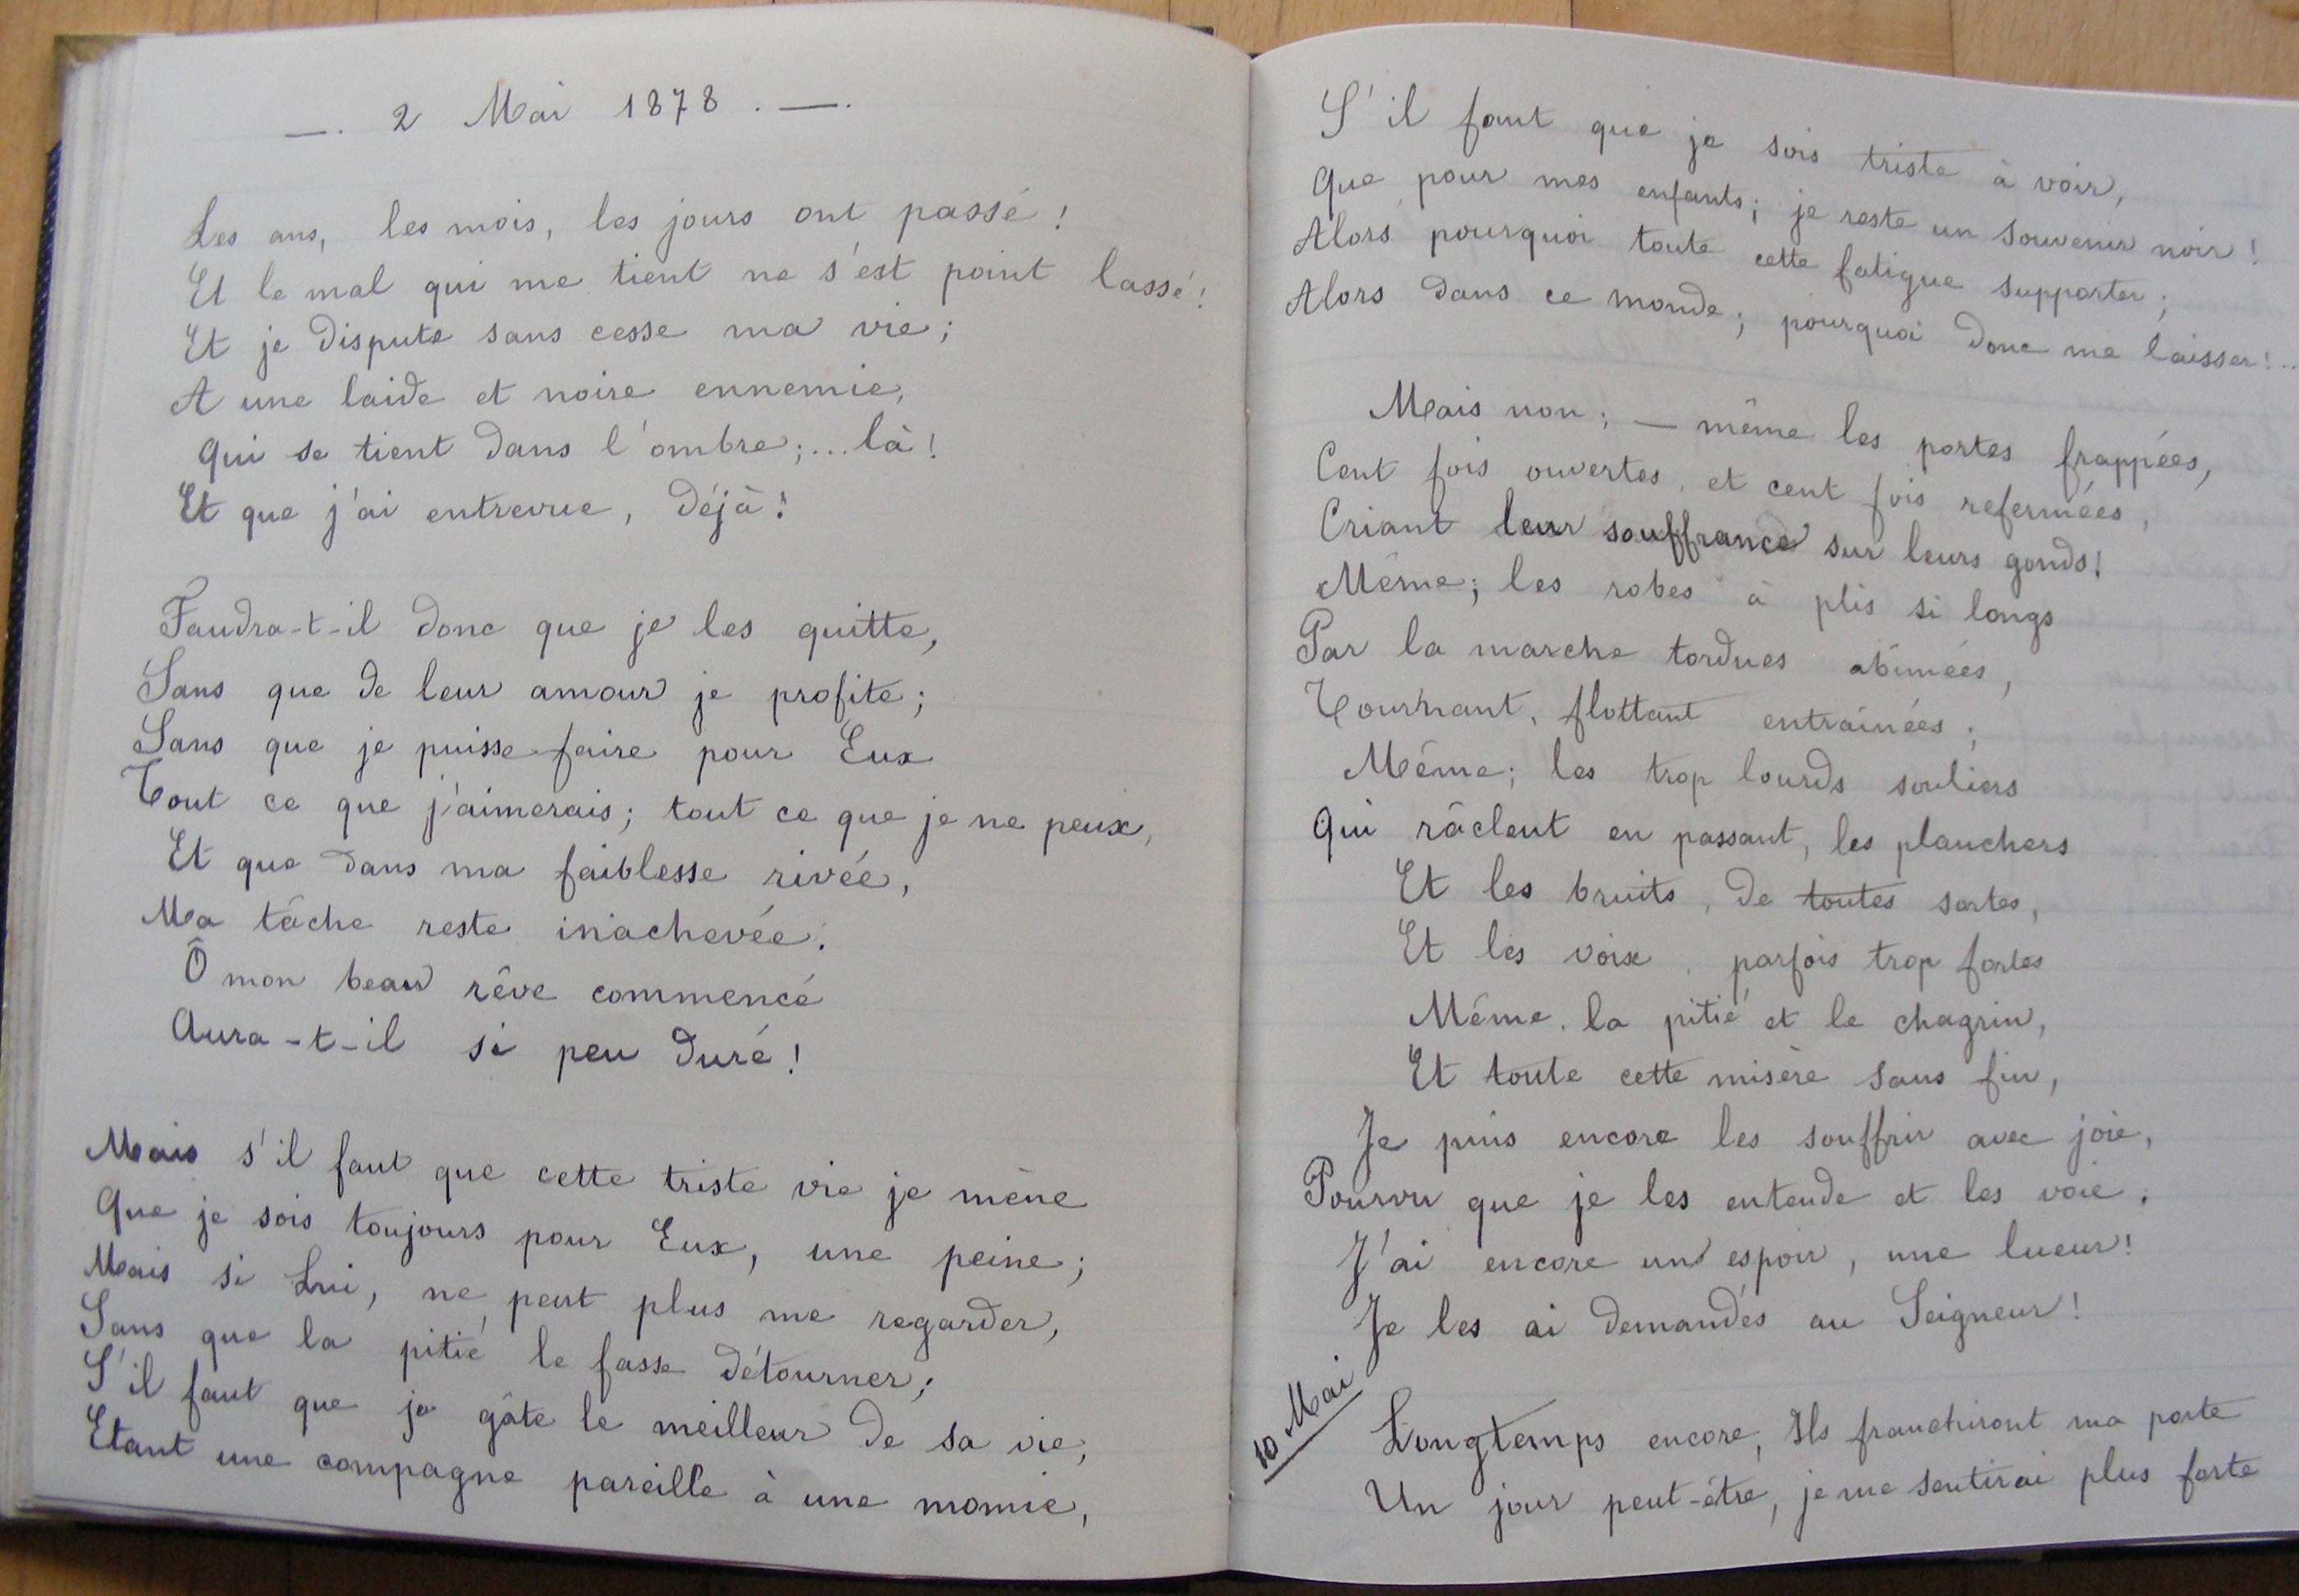 —. 2 Mai 1878. —.
Les ans, les mois, les jours ont passé !
Et le mal qui me tient ne s'est point lassé !
Et je dispute sans cesse ma vie ;
A une laide et noire ennemie,
Qui se tient dans l'ombre ;... là !
Et que j'ai entrevue, déjà !
Faudra-t-il donc que je les quitte,
Sans que de leur amour je profite ;
Sans que je puisse faire pour Eux
Tout ce que j'aimerais ; tout ce que je ne peux,
Et que dans ma faiblesse rivée,
Ma tâche reste inachevée.
Ô mon beau rêve commencé
Aura-t-il si peu duré !
Mais s'il faut que cette triste vie je mène
Que je sois toujours pour Eux, une peine ;
Mais si Lui, ne peut plus me regarder,
Sans que la pitié le fasse détourner ;
S'il faut que je gâte le meilleur de sa vie,
Etant une compagne pareille à une momie,
S'il faut que je sois triste à voir,
Que pour mes enfants ; je reste un souvenir noir !
Alors pourquoi toute cette fatigue supporter ;
Alors dans ce monde ; pourquoi donc me laisser !..
Mais non ; — même les portes frappées,
Cent fois ouvertes, et cent fois refermées,
Criant leur souffrance sur leurs gonds !
Même ; les robes à plis si longs
Par la marche tordues abîmées,
Tournant, flottant entraînées ;
Même ; les trop lourds souliers
Qui râclent en passant, les planchers
Et les bruits, de toutes sortes,
Et les voix, parfois trop fortes
Même, la pitié et le chagrin,
Et toute cette misère sans fin,
Je puis encore les souffrir avec joie,
Pourvu que je les entende et les voie.
J'ai encore un espoir, une lueur !
Je les ai demandés au Seigneur !
10 Mai
Longtemps encore, Ils franchiront ma porte
Un jour peut-être, je me sentirai plus forte